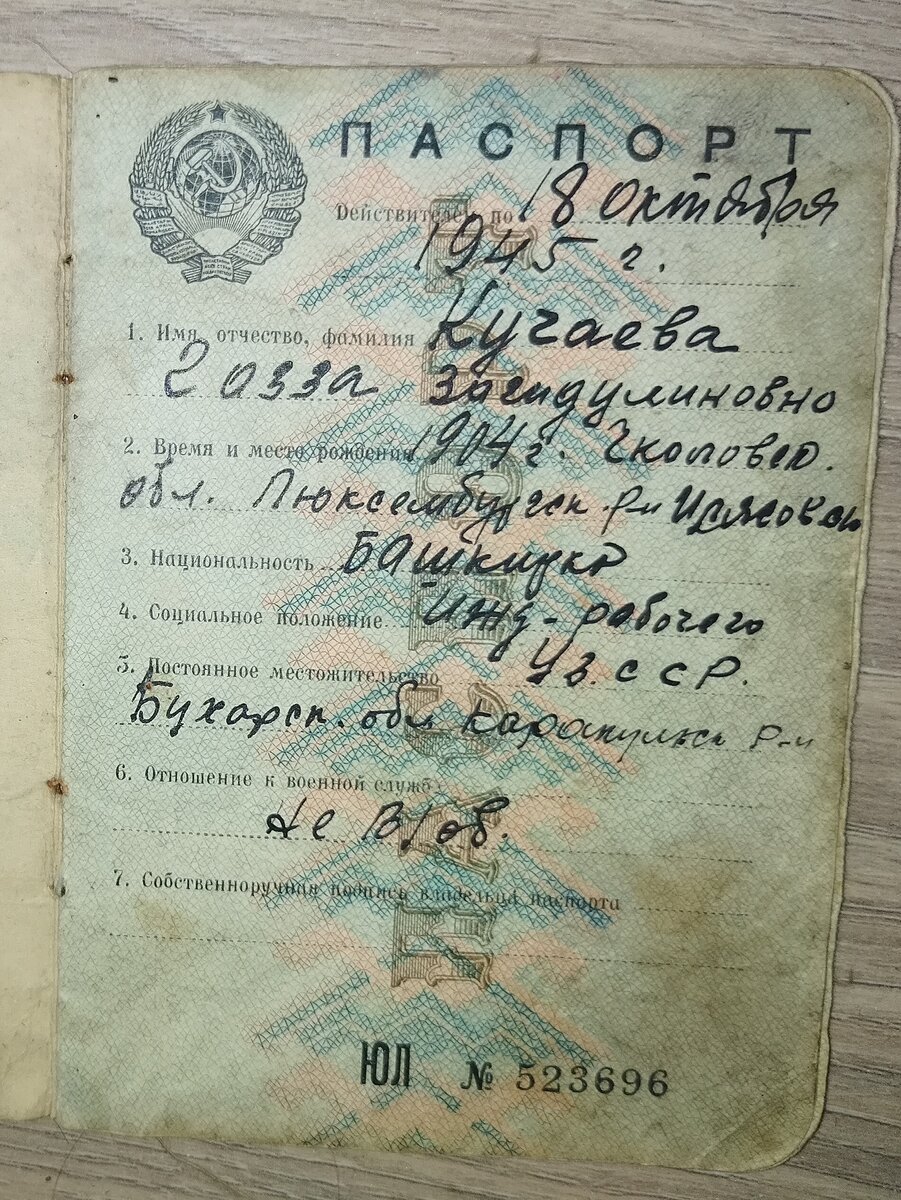 ПАСПОРТ
Действителен по 18 октября
1945 г.
1. Имя, отчество, фамилия Кучаева
Газза Загидулиновно
2. Время и место рождения 1904 г. Чкаловск.
обл. Люксембургск р-н
3. Национальность Башкирка
4. Социальное положение Ижд-рабочего
5. Постоянное местожительство Уз.ССР.
Бухарск. обл Каракульск р-н
6. Отношение к военной службе
Не в/об.
7. Собственноручная подпись владельца паспорта
ПАСПОРТ
ЮЛ № 523696